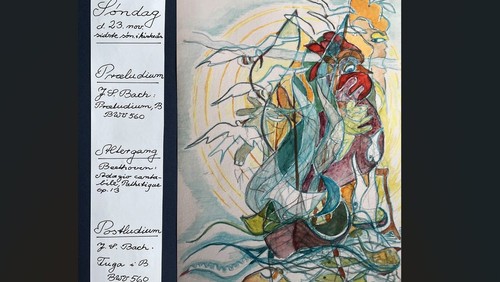 Søndag
d. 23. nov.
sidste søn. i kirkeår
Præludium
J. S. Bach:
Præludium, B
BWV 560
Altergang
Beethoven:
Adagio canta-
bile, Pathetique
op. 13
Postludium
J. S. Bach.
Fuga i B
BWV 560